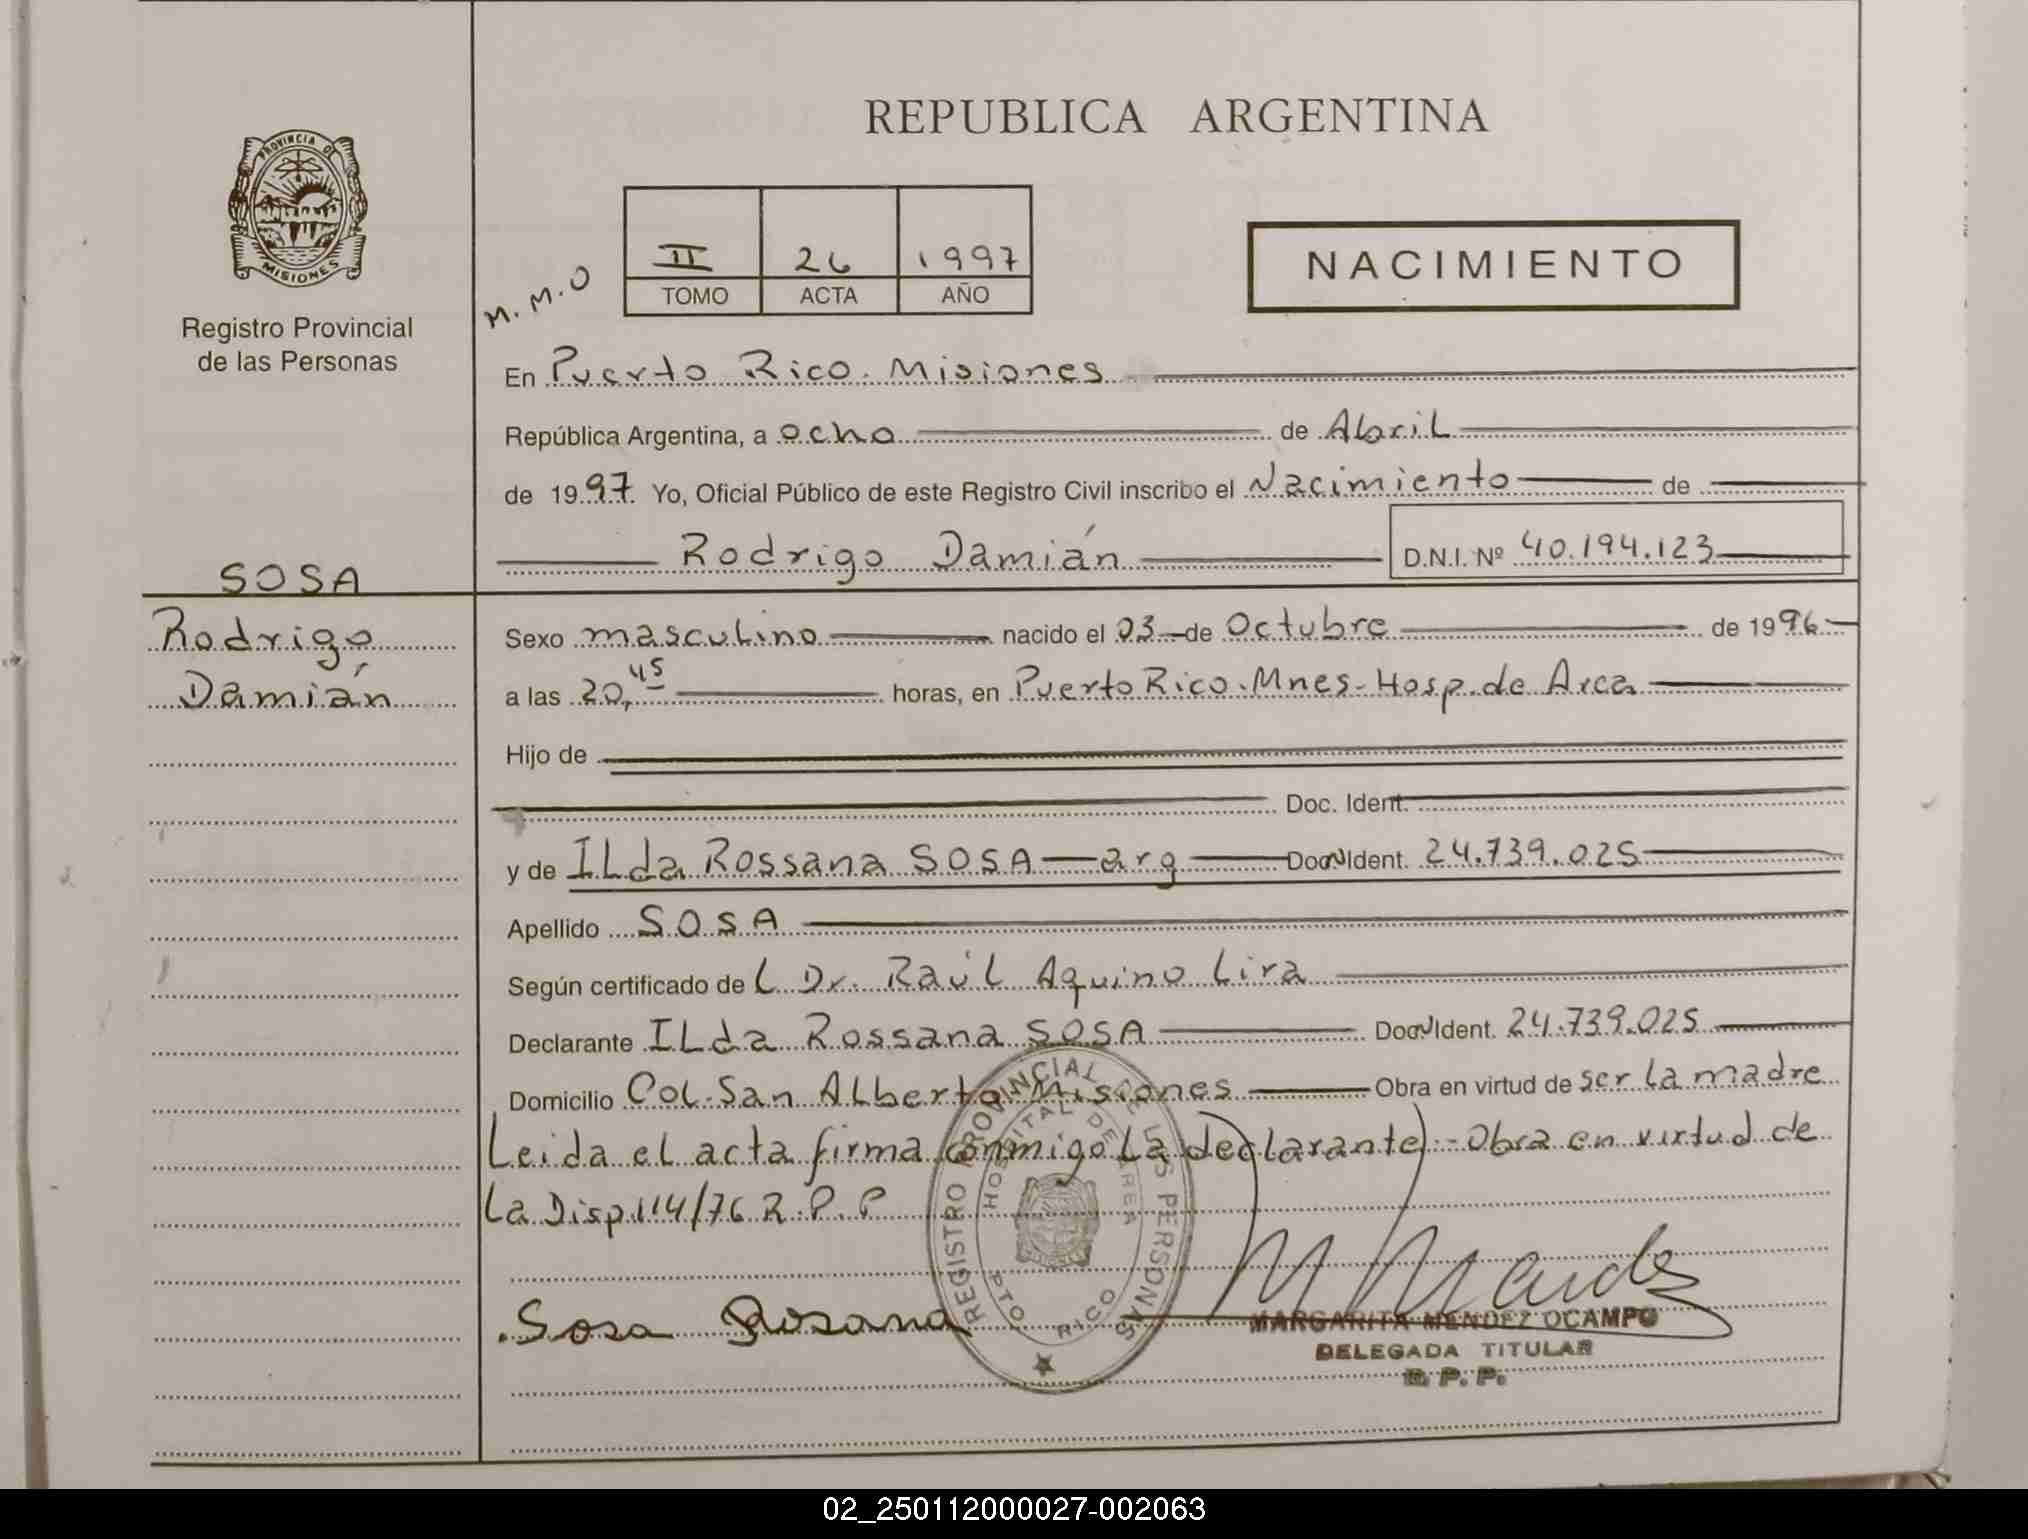 REPUBLICA ARGENTINA
PROVINCIA DE
MISIONES
Registro Provincial
de las Personas
II 26 1997
TOMO ACTA AÑO
M.M.O
NACIMIENTO
En Puerto Rico. Misiones
República Argentina, a ocho de Abril
de 1997. Yo, Oficial Público de este Registro Civil inscribo el Nacimiento de
Rodrigo Damián D.N.I. Nº 40.194.123
SOSA
Rodrigo
Damián
Sexo masculino nacido el 03 de Octubre de 1996
a las 20,45 horas, en Puerto Rico. Mnes- Hosp. de Area
Hijo de
Doc. Ident.
y de ILda Rossana SOSA — arg Doc. Ident. 24.739.025
Apellido SOSA
Según certificado de L Dr. Raúl Aquino Lira
Declarante ILda Rossana SOSA Doc. Ident. 24.739.025
Domicilio Col. San Alberto Misiones Obra en virtud de ser la madre
Leida el acta firma conmigo La declarante).- Obra en virtud de
La Disp 114/76 R.P.P
Sosa Rosana
REGISTRO PROVINCIAL DE LAS PERSONAS
HOSPITAL DE AREA
PTO RICO
M Mendez
MARGARITA MENDEZ OCAMPO
DELEGADA TITULAR
R.P.P.
02_250112000027-002063